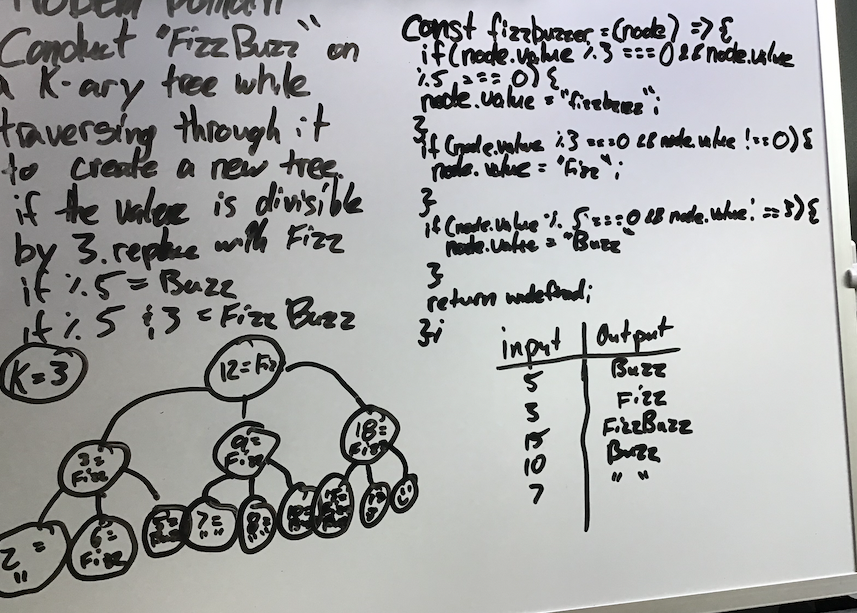 Problem Domain
Conduct "FizzBuzz" on
a K-ary tree while
traversing through it
to create a new tree.
if the value is divisible
by 3. replace with Fizz
if % 5 = Buzz
if % 5 & 3 = FizzBuzz
K=3
12=Fiz
3=
Fizz
9=
Fizz
18=
Fizz
2 =
" "
6=
Fizz
7=
" "
const fizzbuzzer = (node) => {
if(node.value %3 ===0 && node.value
%5 === 0) {
node.value = "fizzbuzz";
}
if (node.value %3 ===0 && node.value !==0) {
node.value = "Fizz";
}
if (node.value % 5 ===0 && node.value !== 3) {
node.value = "Buzz"
}
return undefined;
};
input | Output
5 Buzz
3 Fizz
15 FizzBuzz
10 Buzz
7 " "